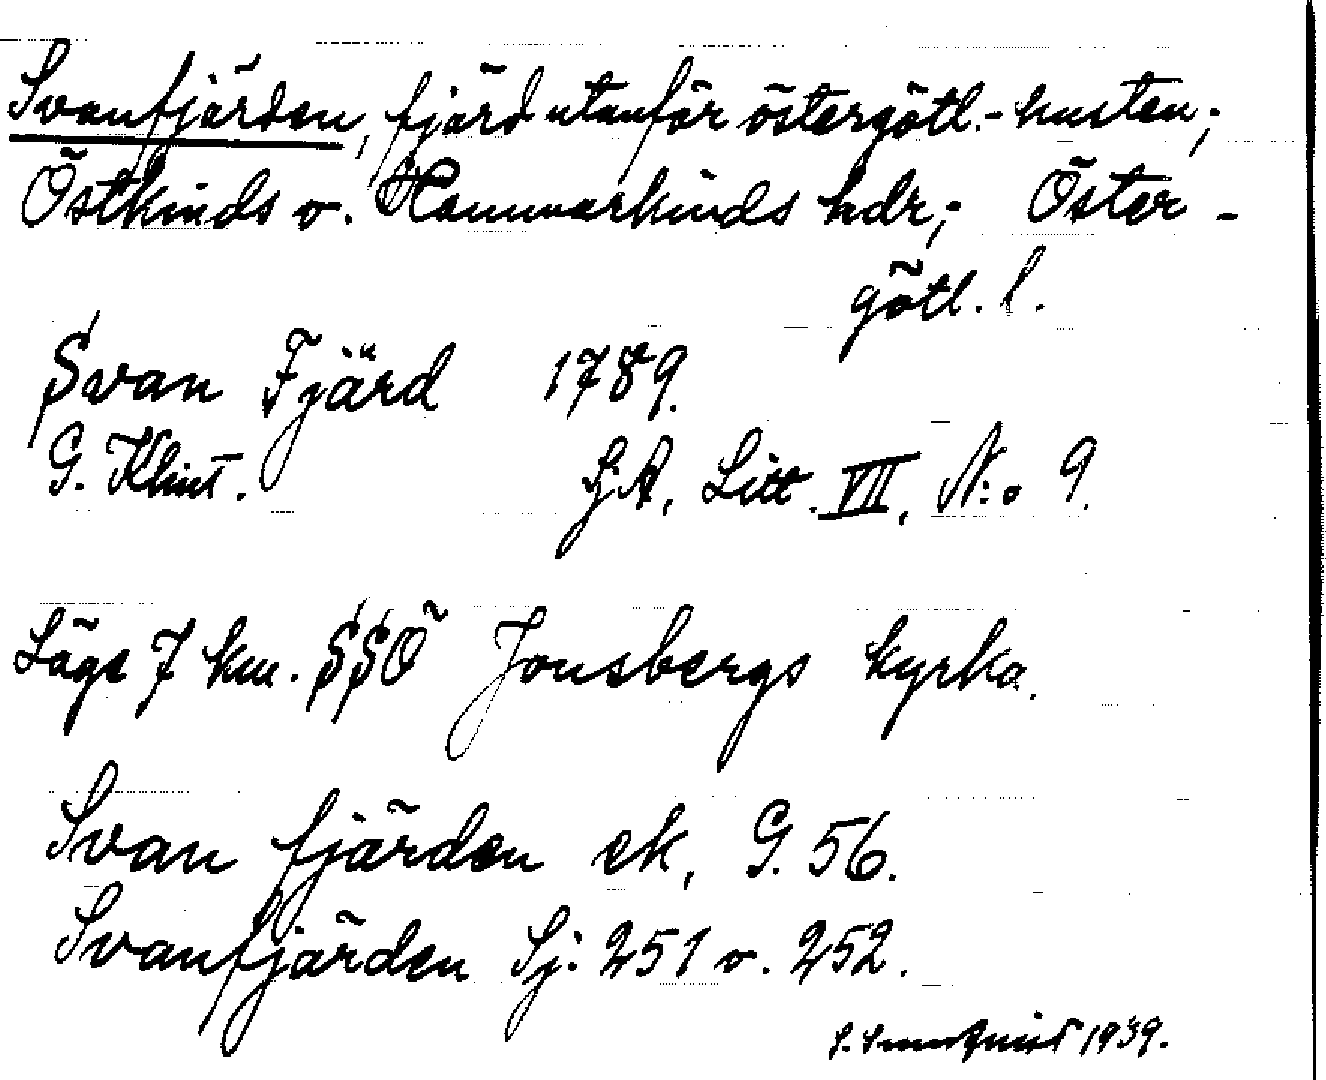 Svanfjärden, fjärd utanför östergötl.-kusten;
Östkinds o. Hammarkinds hdr; Öster-
götl. l.
Svan Fjärd 1789.
G. Klint. SjA, Litt. VII, N:o 9.
Läge 7 km. SSÖ Jonsbergs kyrka.
Svan fjärden ek, G. 56.
Svanfjärden Sj: 251 o. 252.
1939.